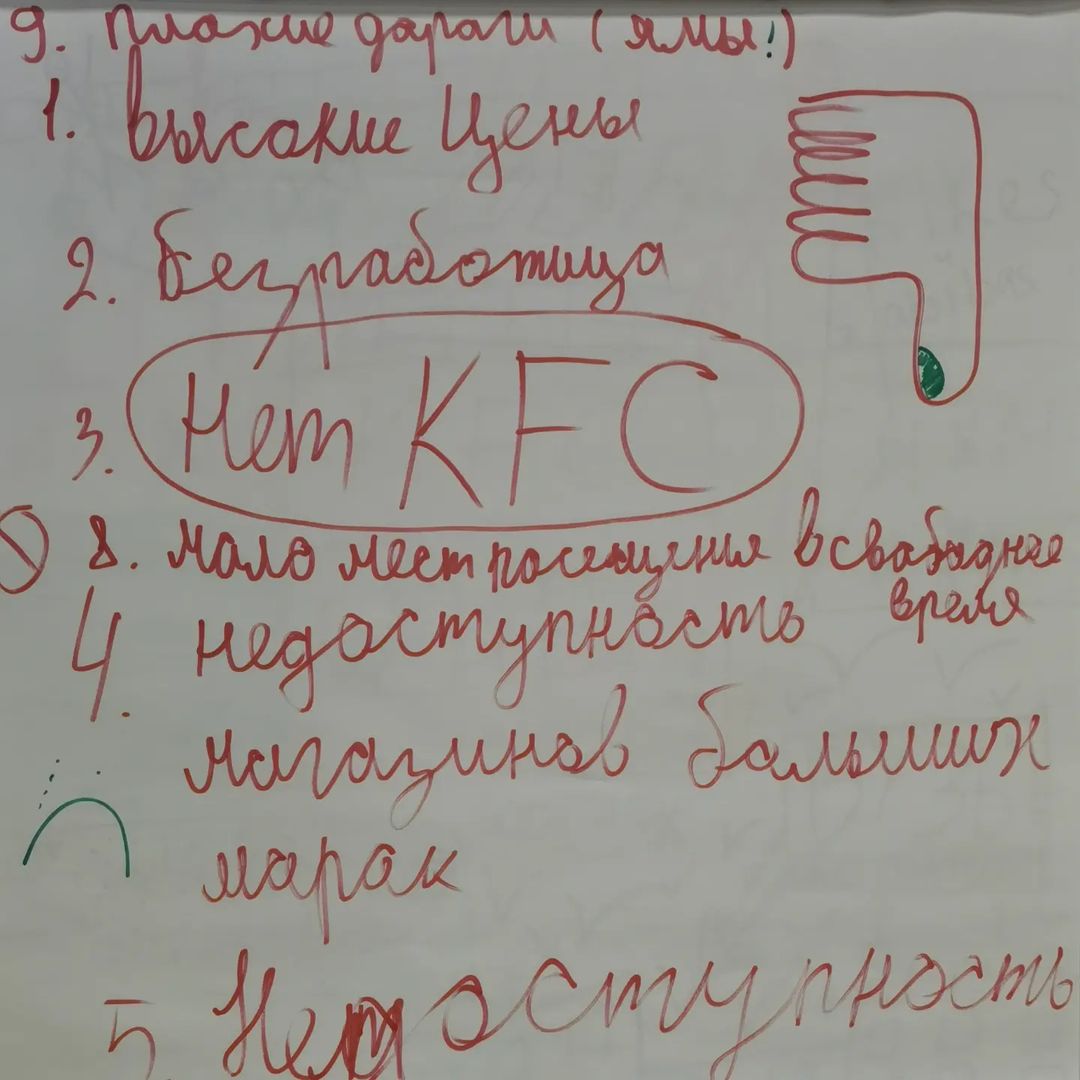 9. Плохие дороги (ямы!)
1. Высокие Цены
2. Безработица
3. Нет KFC
8. мало мест посещения в свободное
время
4. недоступность
магазинов больших
марок
5. Недоступность